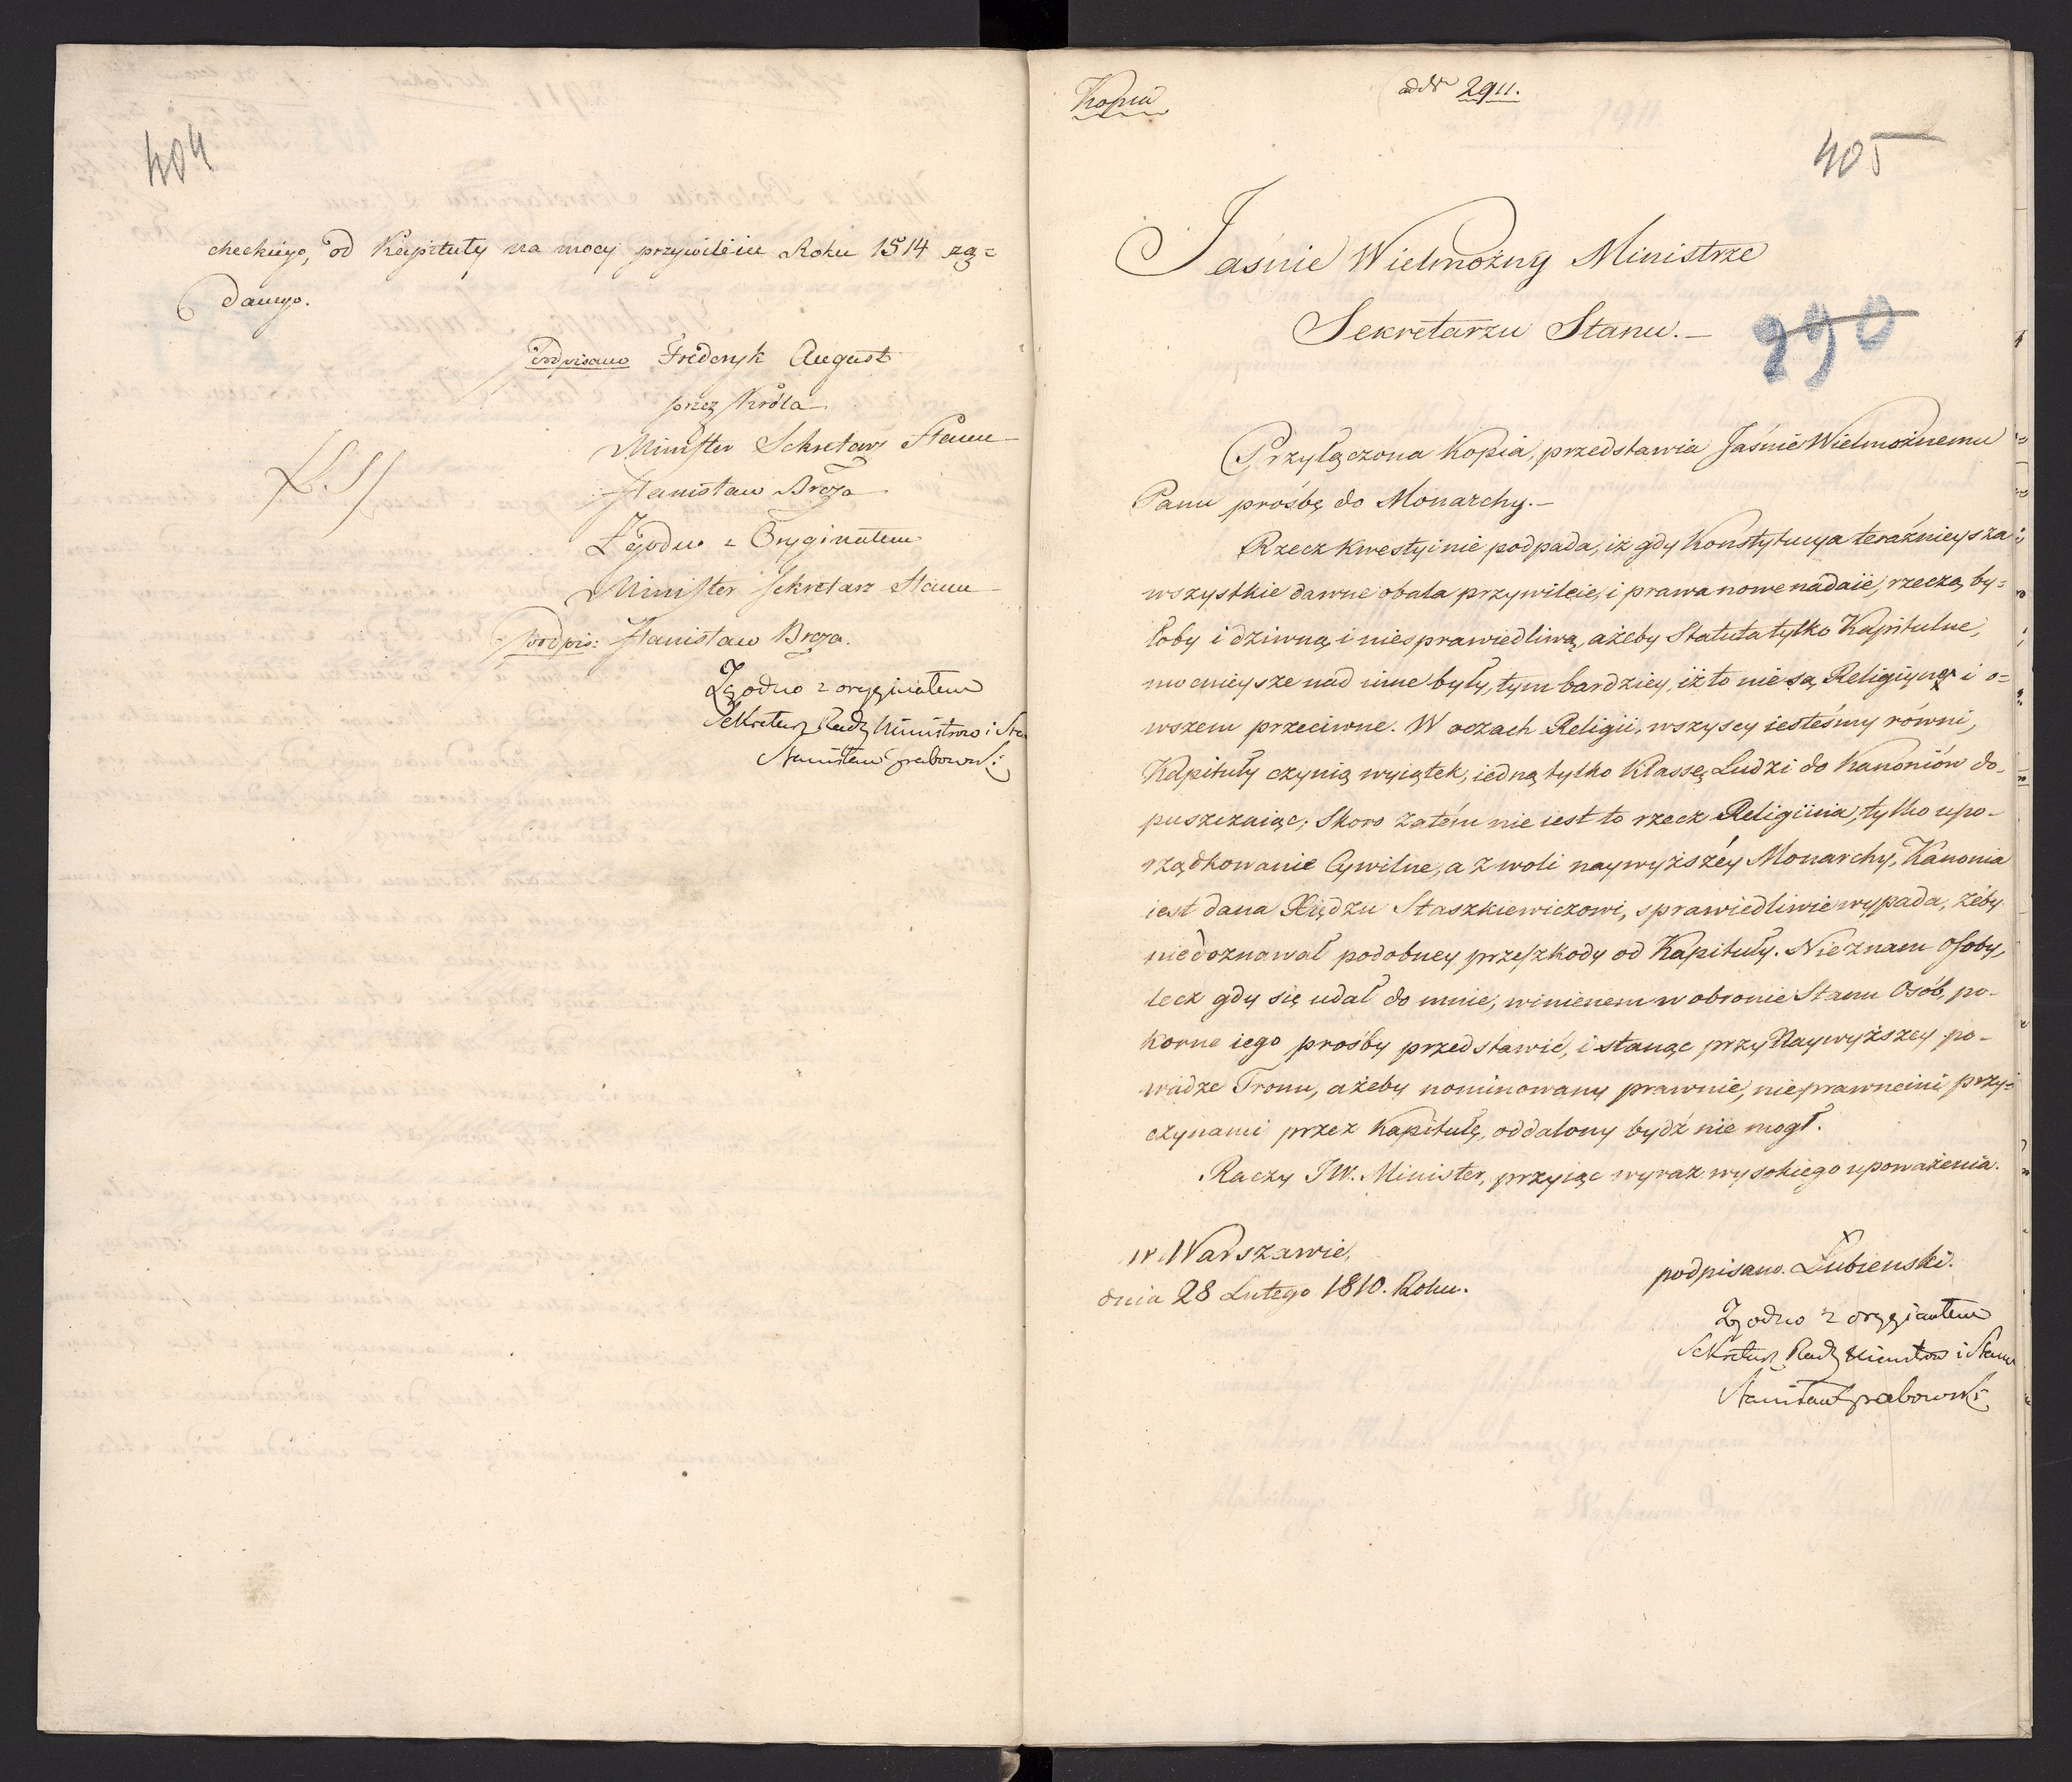 404
checkiego, od Kapituły na mocy przywileiu Roku 1514 żą=
danego.
podpisano Frideryk August
przez Króla
Minister Sekretarz Stanu
L.S.
Stanisław Breza
Zgodno z Oryginałem
Minister Sekretarz Stanu
podpis: Stanisław Breza.
Zgodno z orygjinałem
Sekretarz Rady Ministrów i Sta
Stanisław Grabowski
Kopia
ad Nr 2911.
405
Jaśnie Wielmożny Ministrze
Sekretarzu Stanu.—
290
Przyłączona Kopia, przedstawia Jaśnie Wielmożnemu
Panu prośbę do Monarchy.—
Rzecz kwestyi nie podpada, iż gdy Konstytucya teraźnieysza
wszystkie dawne obala przywileie, i prawa nowe nadaie, rzeczą by=
łoby i dziwną i niesprawiedliwą, ażeby Statuta tylko Kapitulne,
mocnieysze nad inne były, tym bardziey, iż to nie są Religiyne i o=
wszem przeciwne. W oczach Religii, wszyscy iesteśmy równi,
Kapituły czynią wyiątek, iedną tylko Klassę Ludzi do Kanoniów do-
puszczaiąc; Skoro zatém nie iest to rzecz Religiina, tylko upo-
rządkowanie Cywilne, a z woli naywyższéy Monarchy, Kanonia
iest dana Xiędzu Staszkiewiczowi, sprawiedliwie wypada, żeby
niedoznawał podobney przeszkody od Kapituły. Nieznam osoby,
lecz gdy się udał do mnie, winienem w obronie Stanu Osób, po-
korne iego prośby przedstawić, i stanąc przy Naywyższey po-
wadze Tronu, ażeby nominowany prawnie, nieprawnemi przy=
czynami przez Kapitułę, oddalony bydź nie mogł.
Raczy JW. Minister, przyiąc wyraz wysokiego upoważenia.
w Warszawie,
dnia 28 Lutego 1810. Roku.
podpisano. Łubienski.
Zgodno z orygjinałem
Sekretarz Rady Ministrów i Stanu
Stanisław Grabowski